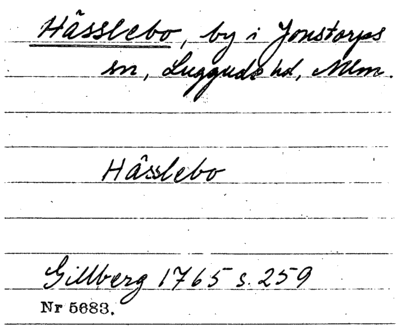 Hâsslebo, by i Jonstorps
sn, Luggude hd, Mlm.
Hâsslebo
Gillberg 1765 s. 259
Nr 5683.